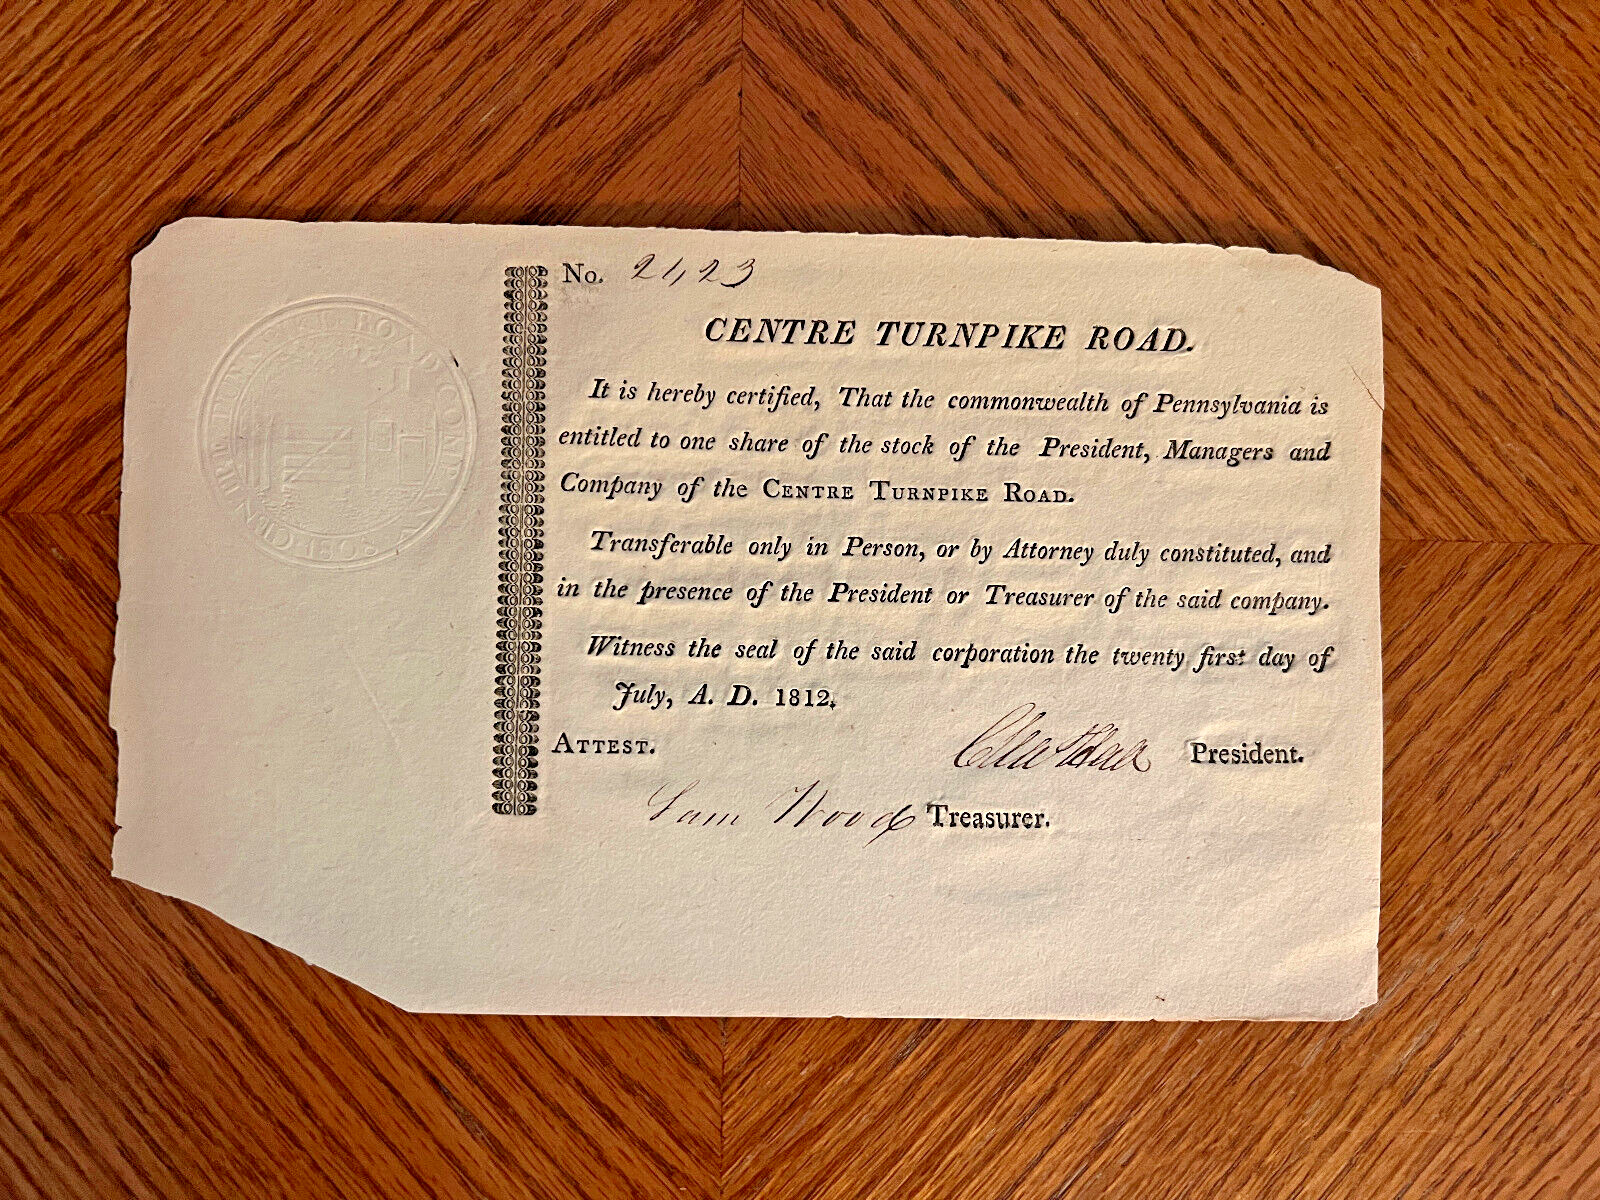 No. 2423
CENTRE TURNPIKE ROAD.
It is hereby certified, That the commonwealth of Pennsylvania is
entitled to one share of the stock of the President, Managers and
Company of the CENTRE TURNPIKE ROAD.
Transferable only in Person, or by Attorney duly constituted, and
in the presence of the President or Treasurer of the said company.
Witness the seal of the said corporation the twenty first day of
July, A. D. 1812.
ATTEST.
President.
Sam Wood Treasurer.